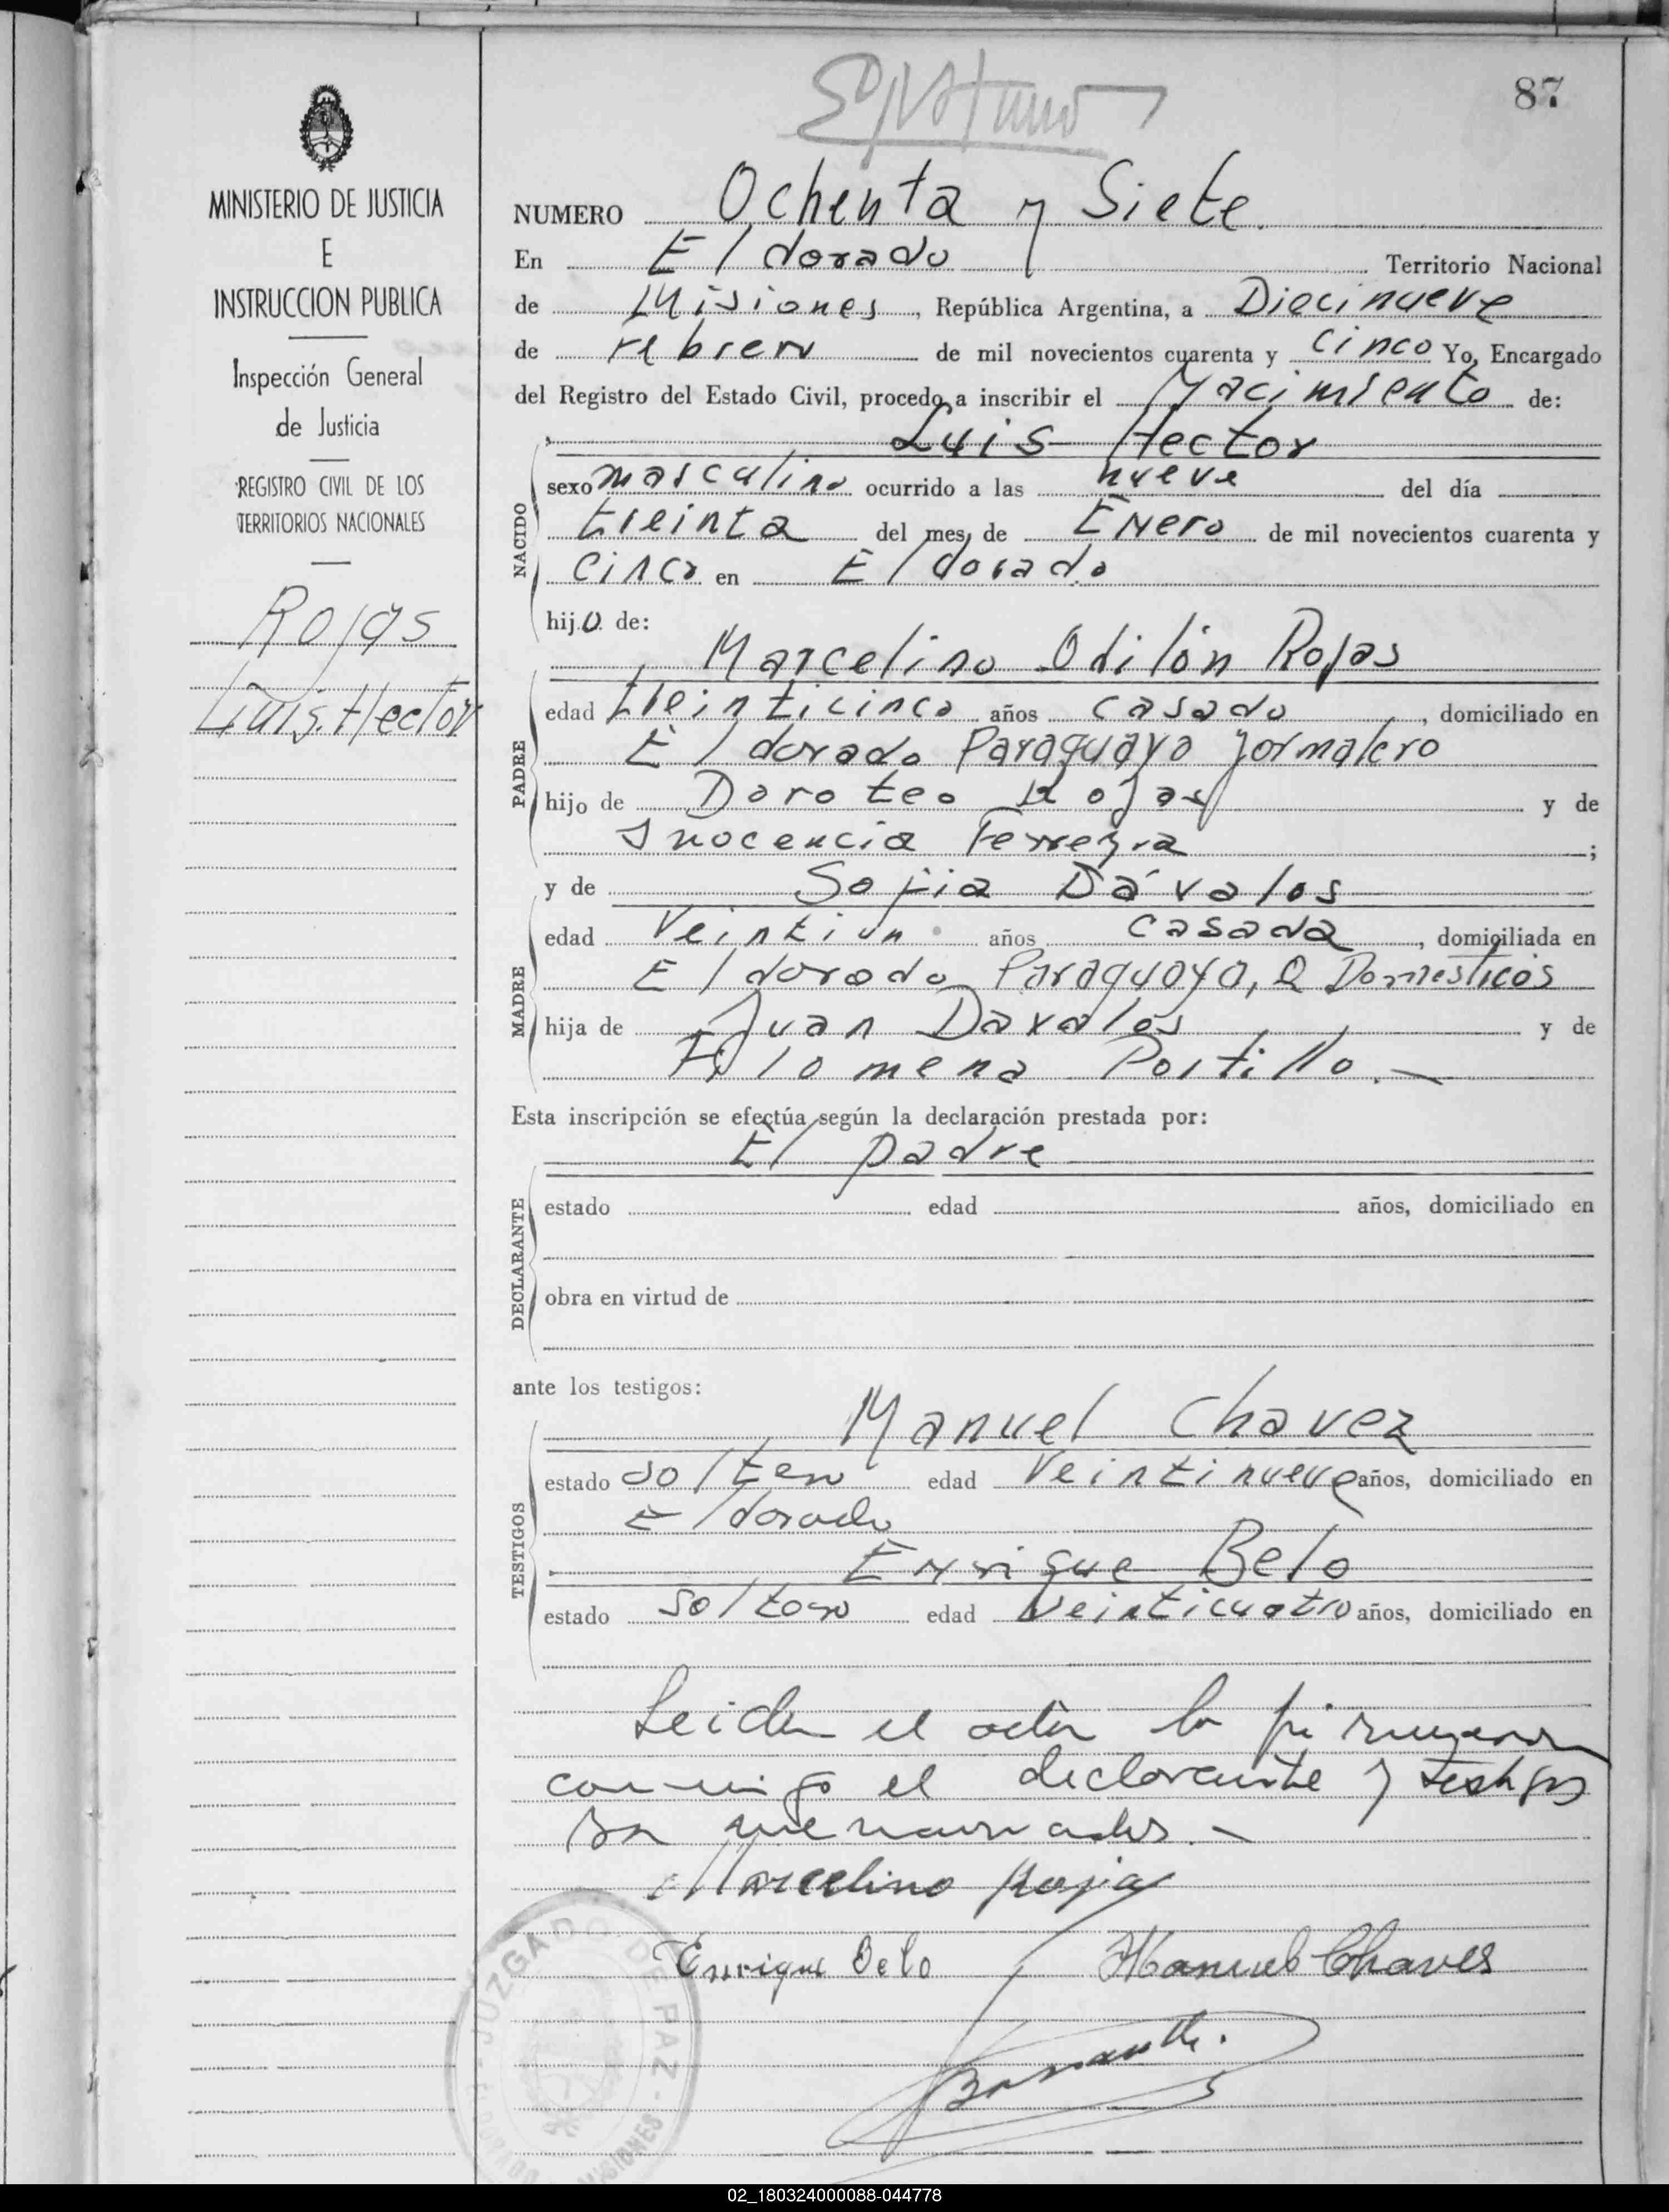 87
MINISTERIO DE JUSTICIA
E
INSTRUCCION PUBLICA
Inspección General
de Justicia
REGISTRO CIVIL DE LOS
TERRITORIOS NACIONALES
Rojas
Luis Hector
NUMERO Ochenta y Siete.
En Eldorado Territorio Nacional
de Misiones, República Argentina, a Diecinueve
de febrero de mil novecientos cuarenta y Cinco Yo, Encargado
del Registro del Estado Civil, procedo a inscribir el Nacimiento de:
Luis Hector
NACIDO
sexo masculino ocurrido a las nueve del día
treinta del mes de Enero de mil novecientos cuarenta y
cinco en Eldorado
hijo de:
Marcelino Odilón Rojas
PADRE
edad treinticinco años casado, domiciliado en
Eldorado Paraguayo Jornalero
hijo de Doroteo Rojas y de
Inocencia Ferreyra;
y de Sofia Dávalos
MADRE
edad Veintiun años casada, domiciliada en
Eldorado Paraguaya, Q Domesticos
hija de Juan Davalos y de
Filomena Portillo.—
Esta inscripción se efectúa según la declaración prestada por:
El padre
DECLARANTE
estado edad años, domiciliado en
obra en virtud de
ante los testigos:
Manuel Chavez
TESTIGOS
estado soltero edad Veintinueve años, domiciliado en
Eldorado
Enrique Belo
estado soltero edad Veinticuatro años, domiciliado en
Leida el acta la firmaron
conmigo el declarante y testigos
mencionados.—
Marcelino Rojas
Enrique Belo Manuel Chaves
JUZGADO DE PAZ - MISIONES
02_180324000088-044778